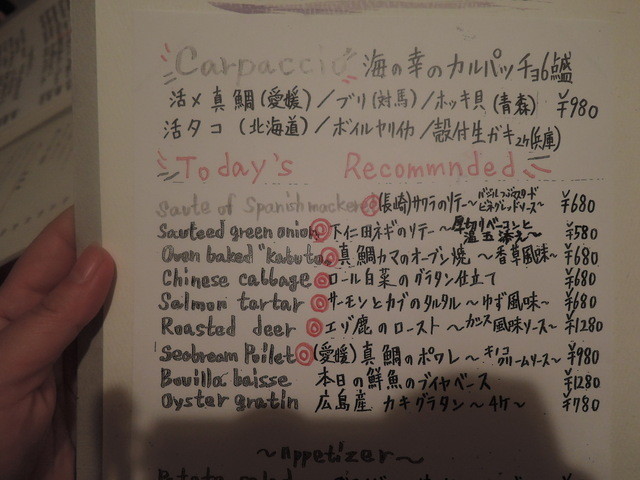 Carpaccio 海の幸のカルパッチョ6盛
活〆真鯛(愛媛)/ブリ(対馬)/ホッキ貝(青森) ¥980
活タコ(北海道)/ボイルヤリイカ/殻付生ガキ2ヶ(兵庫)
Today's Recommnded
Saute of Spanish mackerel (長崎)サワラのソテー～ ビネグレットソース～ ¥680
Sauteed green onion 下仁田ネギのソテー～厚切りベーコンと温玉添え～ ¥580
Oven baked "Kabuto" 真鯛カマのオーブン焼～香草風味～ ¥680
Chinese cabbage ロール白菜のグラタン仕立て ¥680
Salmon tartar サーモンとカブのタルタル～ゆず風味～ ¥680
Roasted deer エゾ鹿のロースト～カシス風味ソース～ ¥1280
Seabream Poilet (愛媛)真鯛のポワレ～キノコクリームソース～ ¥980
Bouilla baisse 本日の鮮魚のブイヤベース ¥1280
Oyster gratin 広島産 カキグラタン～4ケ～ ¥780
～appetizer～